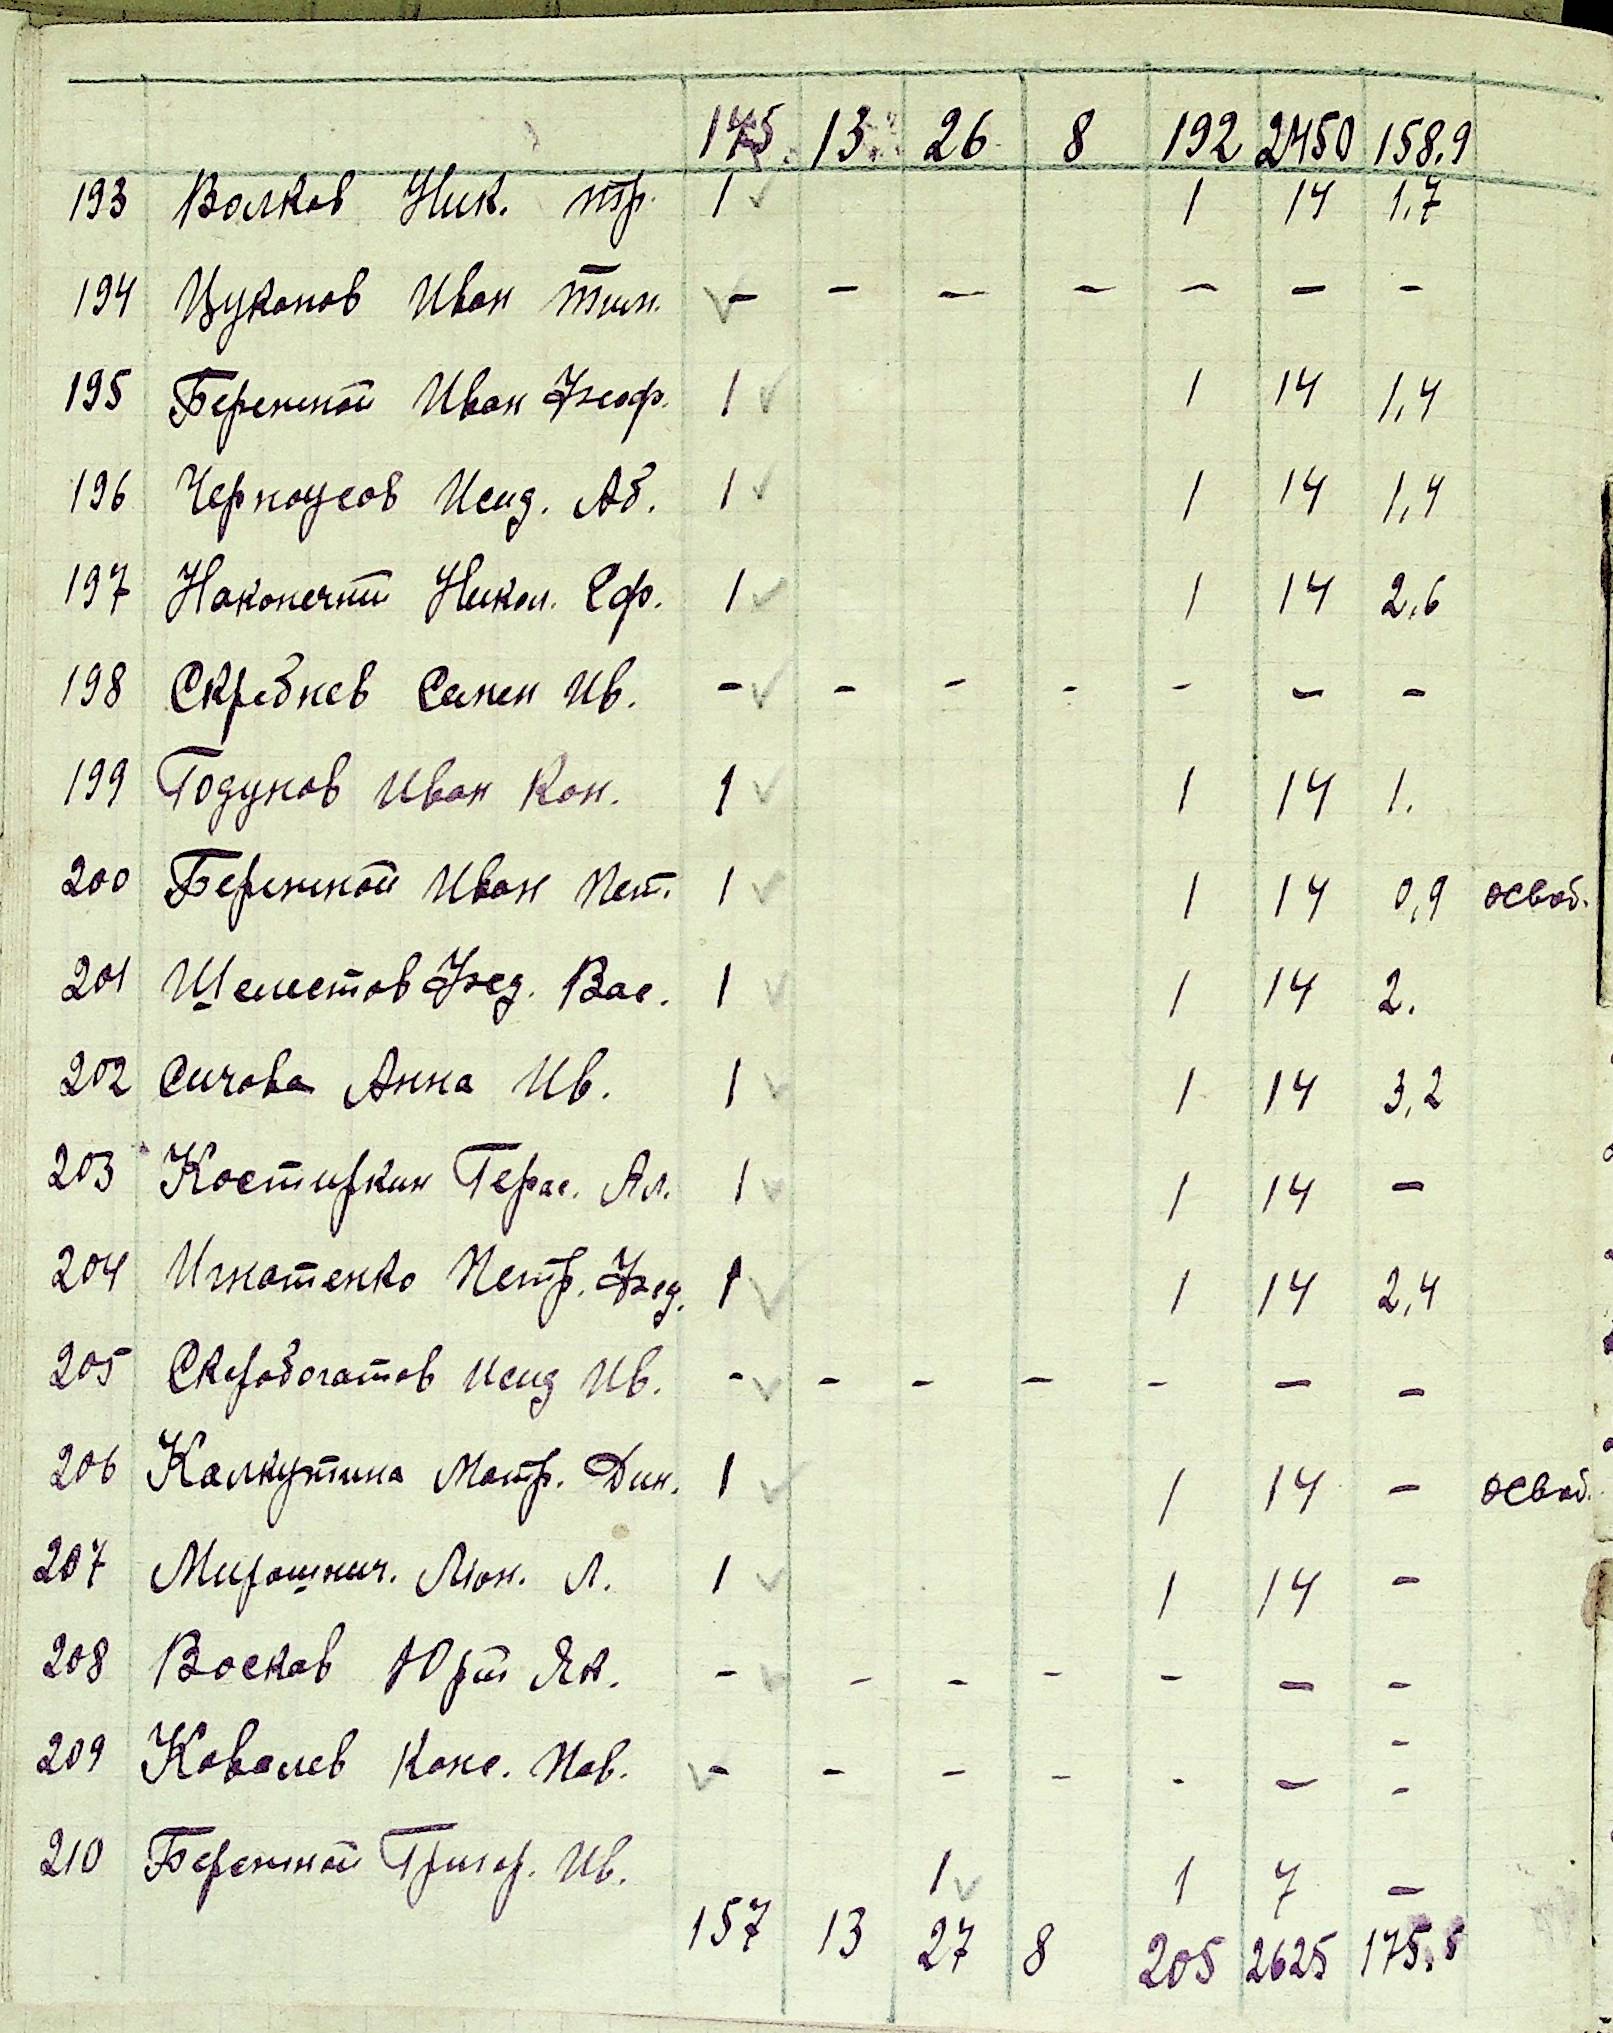 145 13 26 8 192 2450 158,9
193 Волков Ник. тр. 1 1 14 1,7
194 Цуканов Иван Тим. - - - - - - -
195 Бережной Иван Феоф. 1 1 14 1,4
196 Черноусов Исид. Аб. 1 1 14 1,4
197 Наконечный Никол. Еф. 1 1 14 2,6
198 Скребнев Семен Ив. - - - - - - -
199 Годунов Иван Кон. 1 1 14 1.
200 Бережной Иван Пет. 1 1 14 0,9 освоб.
201 Шелестов Фед. Вас. 1 1 14 2.
202 Сичова Анна Ив. 1 1 14 3,2
203 Костиркин Герас. Ал. 1 1 14 -
204 Игнатенко Петр. Фед. 1 1 14 2,4
205 Скоробогатов Исид Ив. - - - - - - -
206 Калкутина Матр. Дин. 1 1 14 - освоб.
207 Мирошнич. Л. 1 1 14 -
208 Восков Юрий Як. - - - - - - -
209 Ковалев Конс. Пав. - - - - - - -
210 Бережной Григор. Ив. 1 1 7 -
157 13 27 8 205 2625 175,5